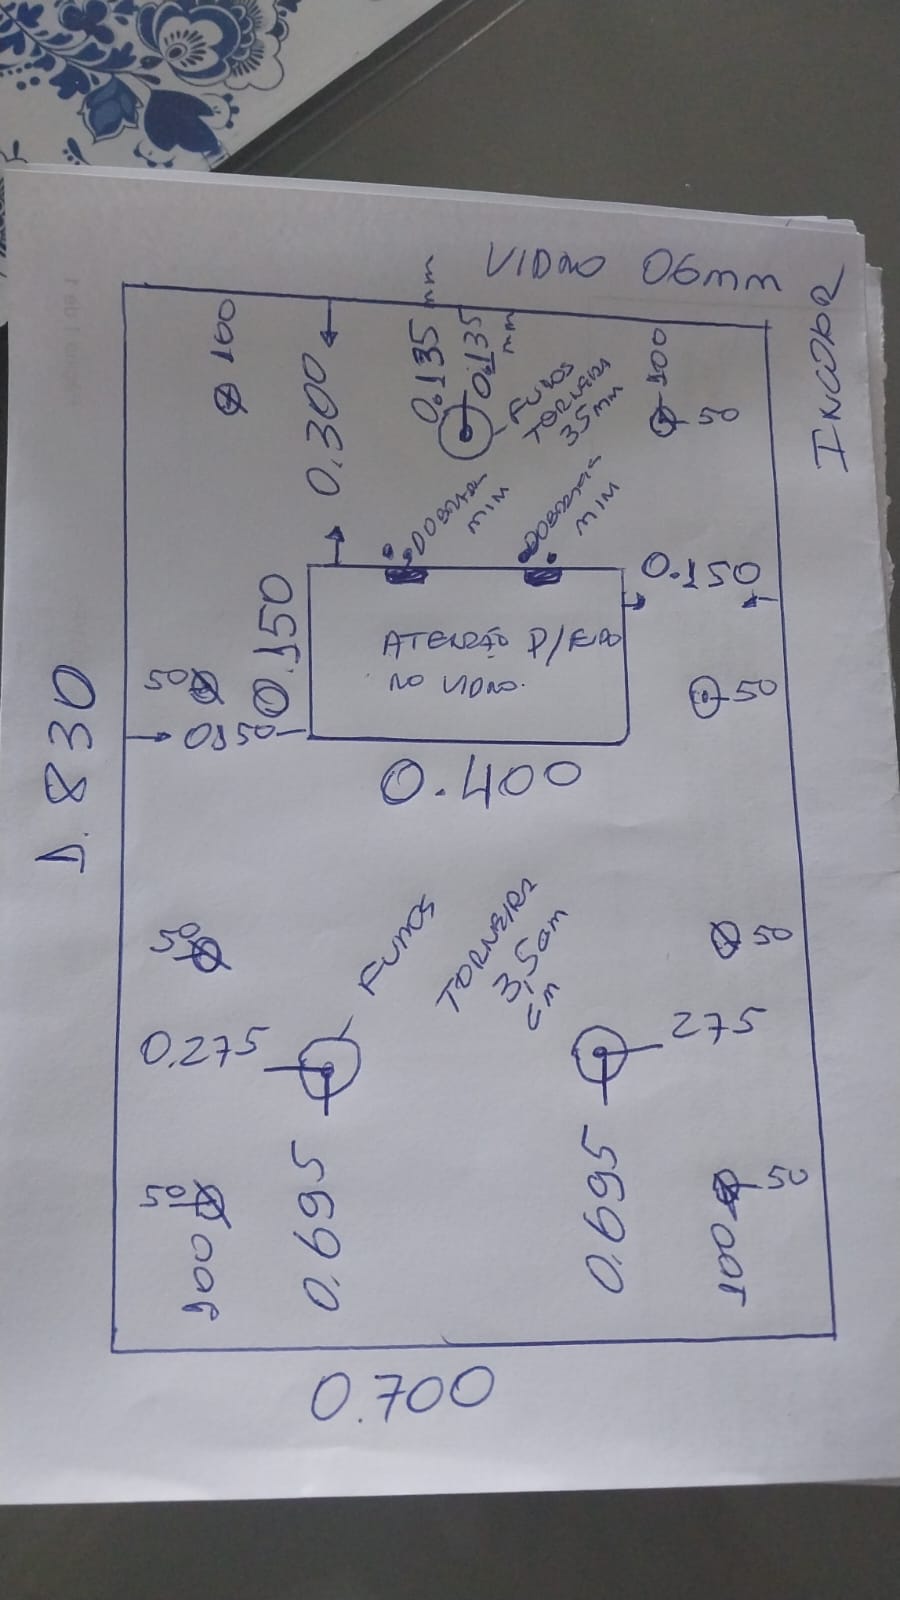 VIDRO 06mm
INCOLOR
100
0.300
0.135 mm
0.135
mm
FUROS
TORNEIRA
35mm
100
50
DOBRADIÇA
MINI
DOBRADIÇA
MINI
0.150
0.150
ATENÇÃO P/
NO VIDRO.
50
50
0150
1.830
0.400
50
50
FUROS
TORNEIRA
3,5cm
cm
0.275
275
50
50
100
0.695
0.695
100
0.700